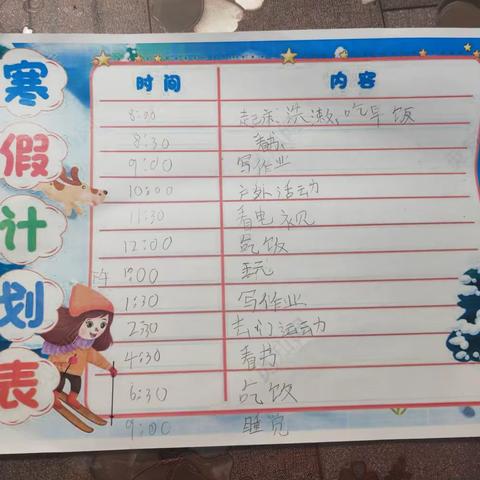 寒假计划表
时间 内容
8:00 起床、洗漱、吃早饭
8:30 看书
9:00 写作业
10:00 户外活动
11:30 看电视
12:00 吃饭
1:00 玩
1:30 写作业
2:30 去门运动
4:30 看书
6:30 吃饭
9:00 睡觉